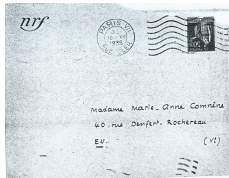 nrf
PARIS VII
1935
Madame Marie-Anne Comnène
40 rue Denfert-Rochereau
E.V.
(VI)